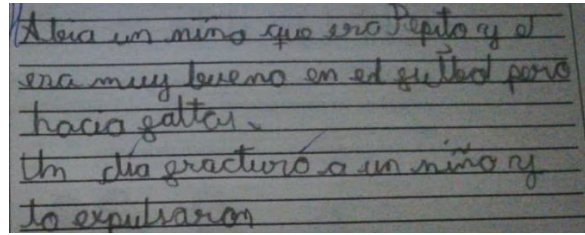 Abia un niño que era Pepito y el
era muy bueno en el futbol pero
hacia faltas.
Un día fracturó a un niño y
lo expulsaron